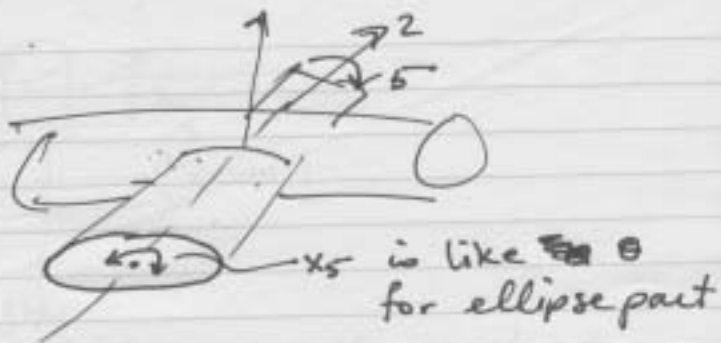 2
5
x5 is like θ
for ellipse part